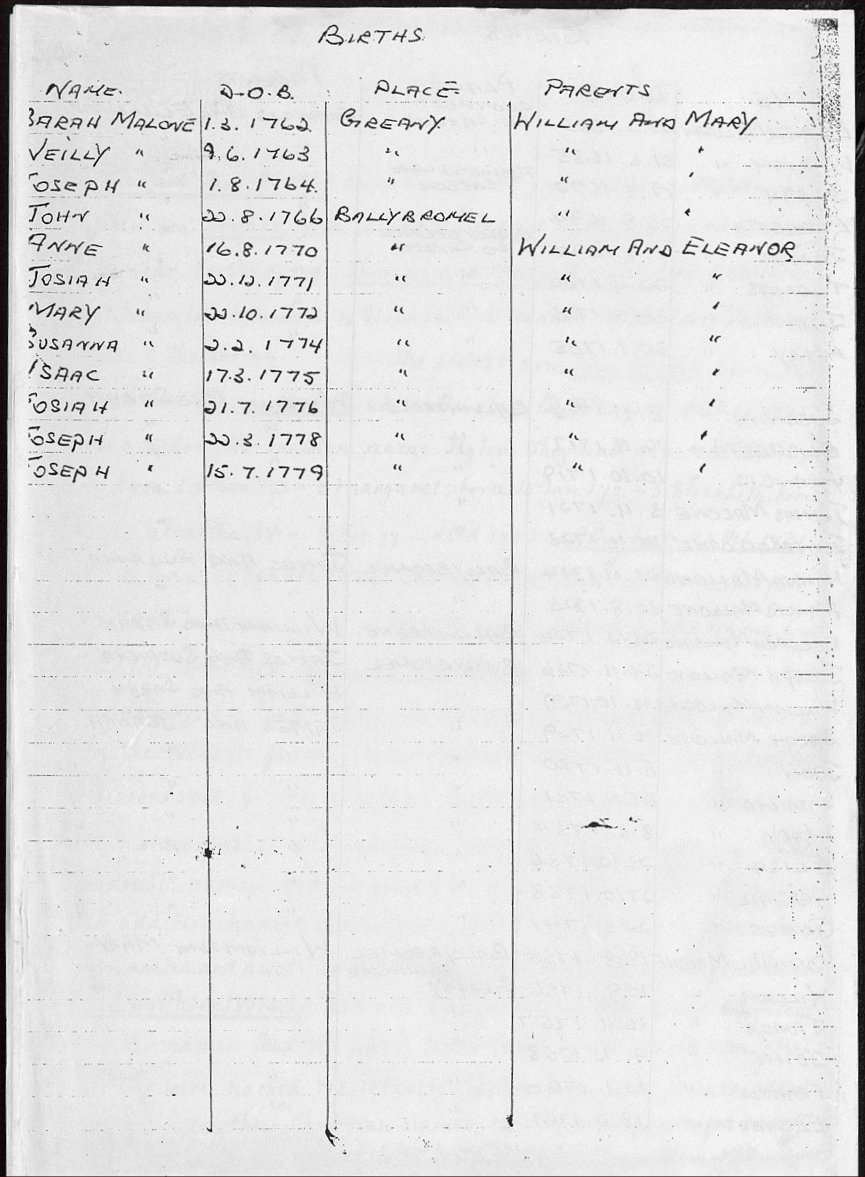 BIRTHS
NAME. D.O.B. PLACE. PARENTS
SARAH MALONE 1.3.1762 GREANY WILLIAM AND MARY
NEILLY " 9.6.1763 " " "
JOSEPH " 1.8.1764. " " "
JOHN " 22.8.1766 BALLYBROMEL " "
ANNE " 16.8.1770 " WILLIAM AND ELEANOR
JOSIAH " 22.12.1771 " " "
MARY " 22.10.1772 " " "
SUSANNA " 2.2.1774 " " "
ISAAC " 17.3.1775 " " "
JOSIAH " 21.7.1776 " " "
JOSEPH " 22.3.1778 " " "
JOSEPH " 15.7.1779 " " "